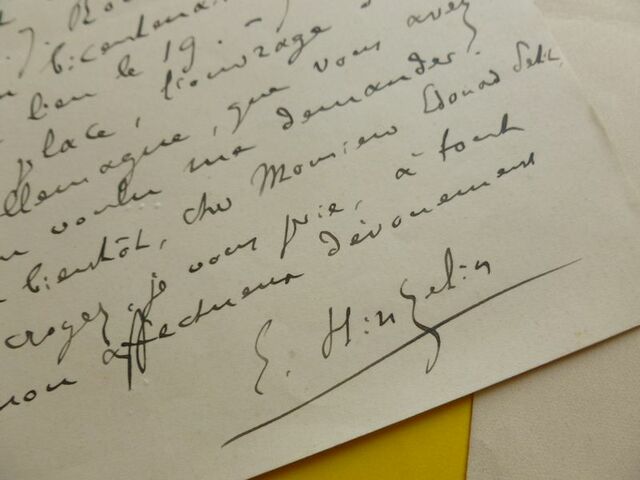 bicentenaire
lieu le 19.
place, l'ouvrage
que vous avez
voulu me demander.
bientôt, cher Monsieur Edouard
croyez, je vous prie, à tout
mon affectueux dévouement
E. Hinzelin